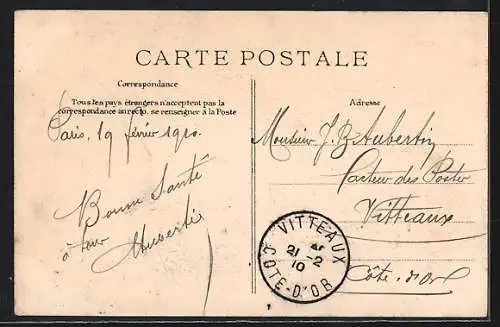 CARTE POSTALE
Correspondance
Tous les pays étrangers n'acceptent pas la
correspondance au recto, se renseigner à la Poste
Paris, 19 février 1910.
Bonne Santé
à tous
Aubertin
Adresse
Monsieur J. B. Aubertin
Facteur des Postes
Vitteaux
Côte-d'Or
VITTEAUX
21 -2
10
COTE-D'OR